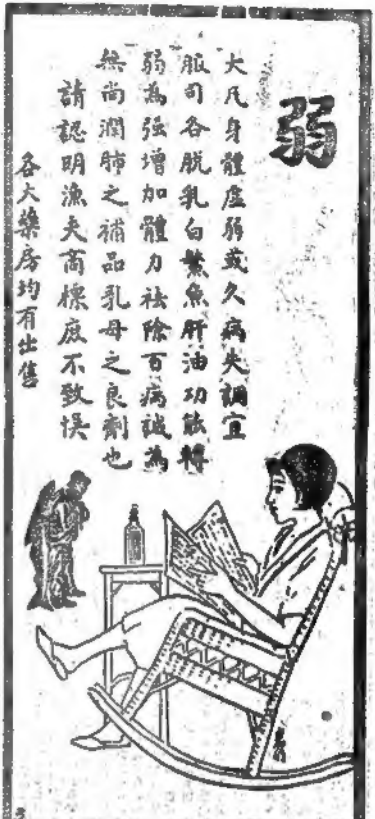 弱
大凡身體虛弱或久病失調宜
服司各脱乳白鰵魚肝油功能轉
弱為强增加體力祛除百病誠為
無尚潤肺之補品乳母之良劑也
請認明漁夫商標庶不致悞
各大藥房均有出售